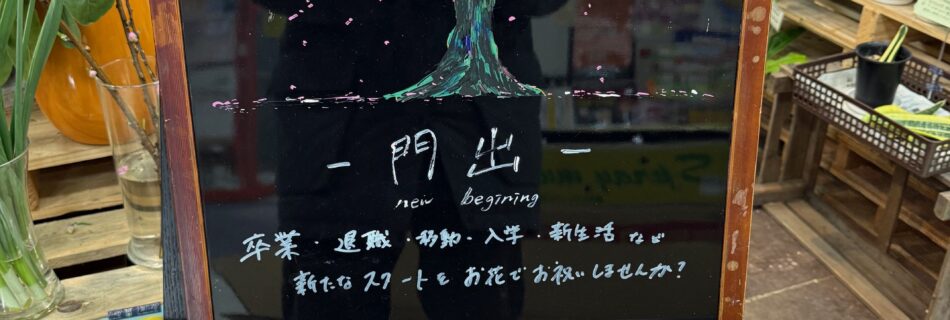 - 門出 -
new begining
卒業・退職・移動・入学・新生活など
新たなスタートをお花でお祝いしませんか?